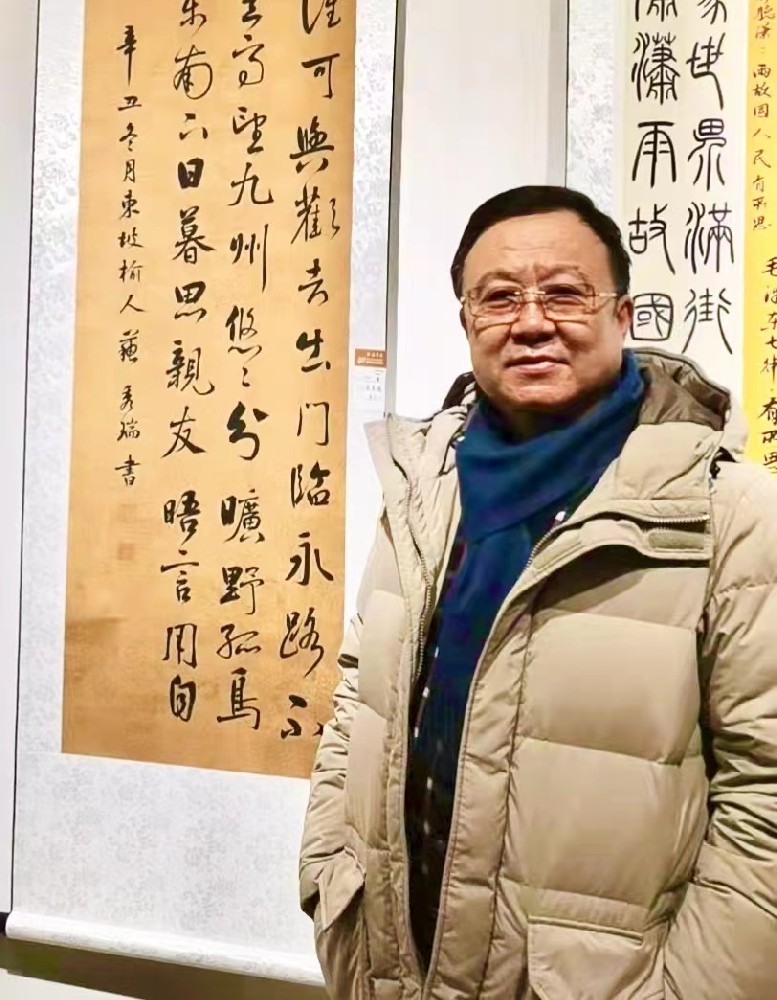 可與歡者出門臨永路不
高望九州悠々分曠野孤鳥
東南下日暮思親友晤言用自
辛丑冬月東坡榆人蘇秀瑞書
世界滿街
瀟雨故國
聽瀟々雨故国人民有所思
毛澤东七律·有所思